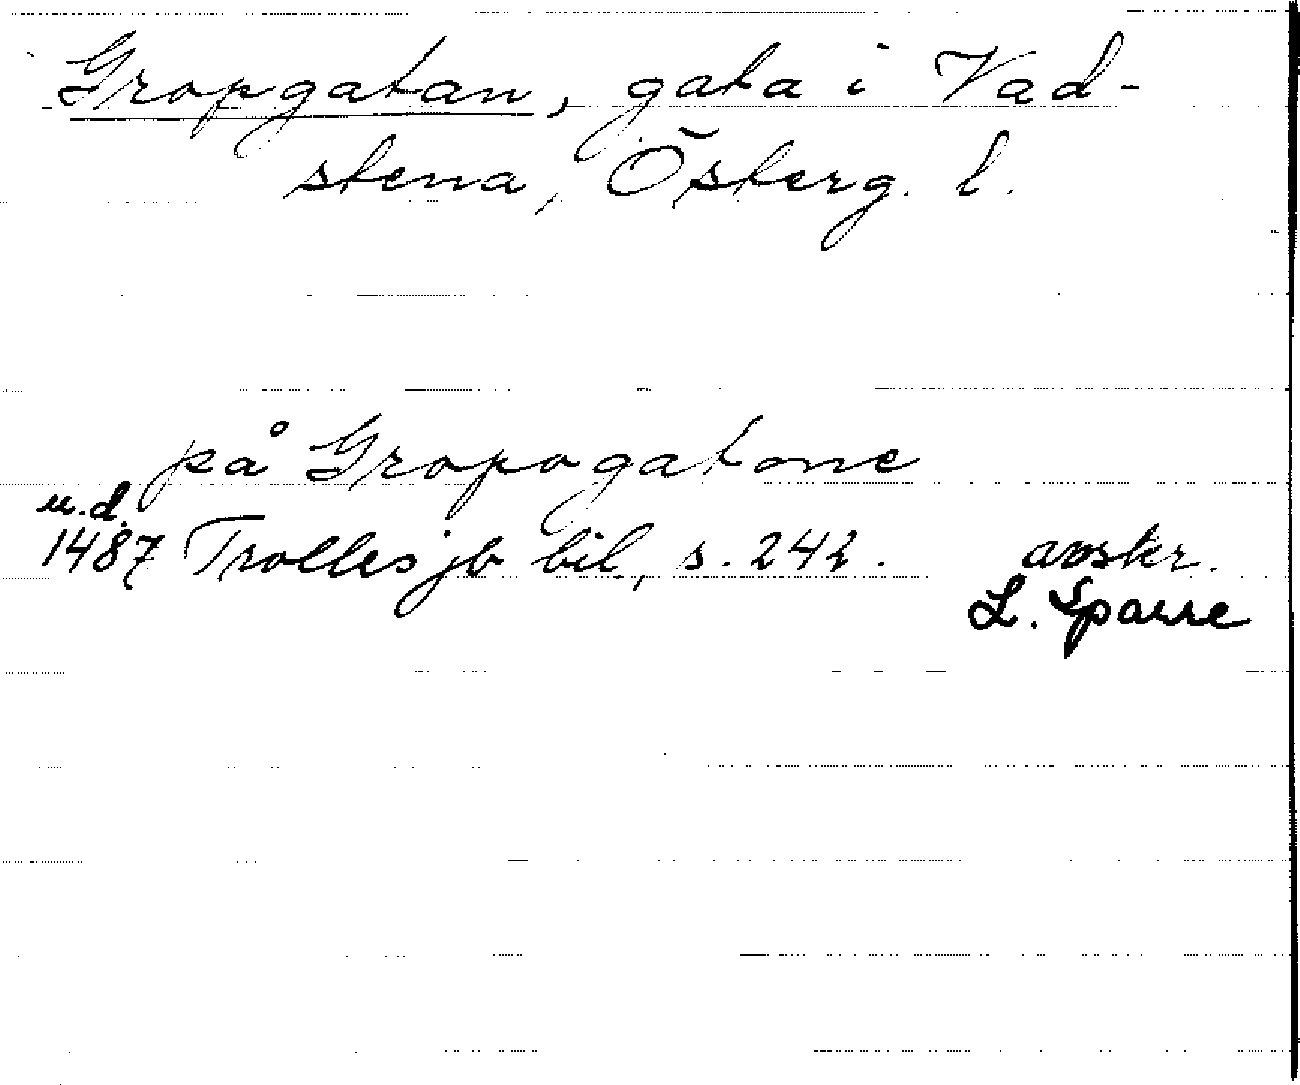 Gropgatan, gata i Vad-
stena, Österg. l.
på Gropogatone
u.d.
1487 Trolles jb bil, s. 242. avskr.
L. Sparre